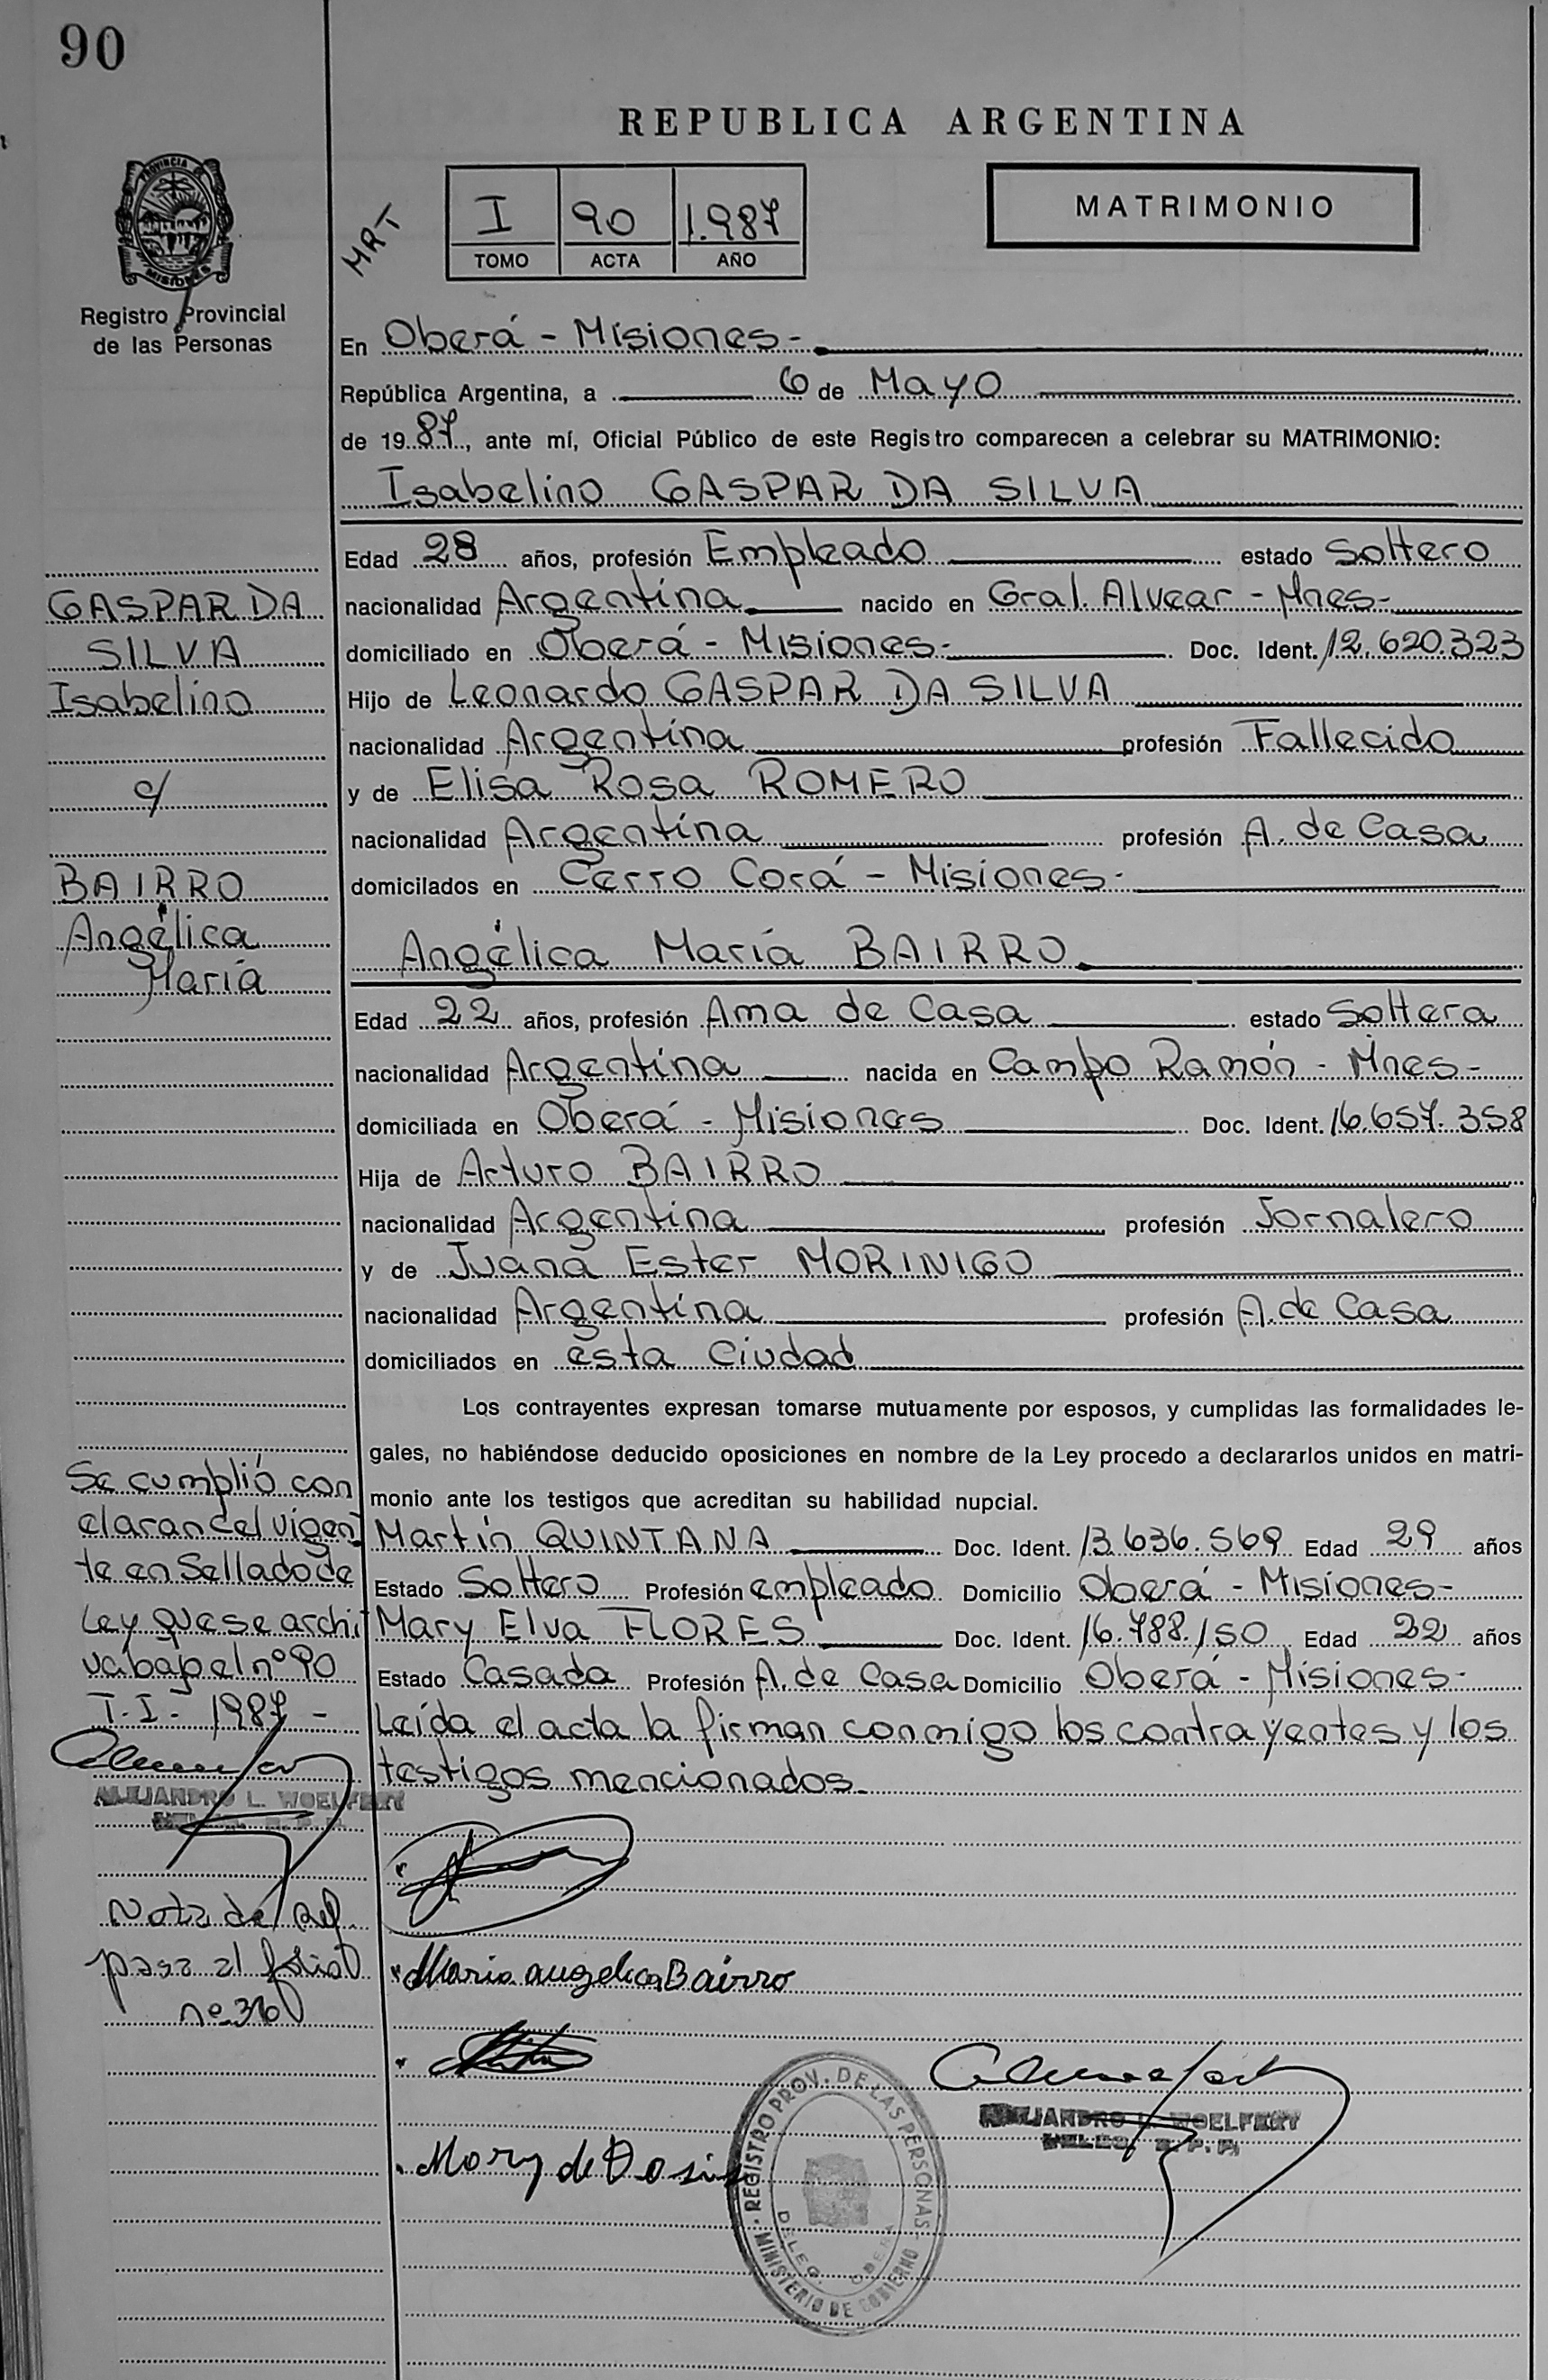 90
REPUBLICA ARGENTINA
PROVINCIA
MISIONES
Registro Provincial
de las Personas
MRT
I 90 1.987
TOMO ACTA AÑO
MATRIMONIO
En Oberá - Misiones -
República Argentina, a 6 de Mayo
de 1987, ante mí, Oficial Público de este Registro comparecen a celebrar su MATRIMONIO:
Isabelino GASPAR DA SILVA
Edad 28 años, profesión Empleado estado Soltero
nacionalidad Argentina nacido en Gral. Alvear - Mnes-
domiciliado en Oberá - Misiones- Doc. Ident. 12.620.323
Hijo de Leonardo GASPAR DA SILVA
nacionalidad Argentina profesión Fallecido
y de Elisa Rosa ROMERO
nacionalidad Argentina profesión A. de Casa
domicilados en Cerro Corá - Misiones-
Angélica María BAIRRO
Edad 22 años, profesión Ama de Casa estado Soltera
nacionalidad Argentina nacida en Campo Ramón - Mnes-
domiciliada en Oberá - Misiones Doc. Ident. 16.657.358
Hija de Arturo BAIRRO
nacionalidad Argentina profesión Jornalero
y de Juana Ester MORINIGO
nacionalidad Argentina profesión A. de Casa
domiciliados en esta Ciudad
Los contrayentes expresan tomarse mutuamente por esposos, y cumplidas las formalidades le-
gales, no habiéndose deducido oposiciones en nombre de la Ley procedo a declararlos unidos en matri-
monio ante los testigos que acreditan su habilidad nupcial.
Martín QUINTANA Doc. Ident. 13.636.569 Edad 29 años
Estado Soltero Profesión empleado Domicilio Oberá - Misiones-
Mary Elva FLORES Doc. Ident. 16.788.150 Edad 22 años
Estado Casada Profesión A. de Casa Domicilio Oberá - Misiones-
Leída el acta la firman conmigo los contrayentes y los
testigos mencionados.
GASPAR DA
SILVA
Isabelino
c/
BAIRRO
Angélica
María
Se cumplió con
el arancel vigen
te en Sellado de
Ley que se archi
va bajo el nº 90
T. I - 1987 -
ALEJANDRO L. WOELFERT
DELEG. R. P. P.
Nota de Ref.
pasa al folio
nº
Maria angelica Bairro
Mary de
REGISTRO PROV. DE LAS PERSONAS
MINISTERIO DE GOBIERNO
DELEG. OBERA
ALEJANDRO L. WOELFERT
DELEG. R. P. P.